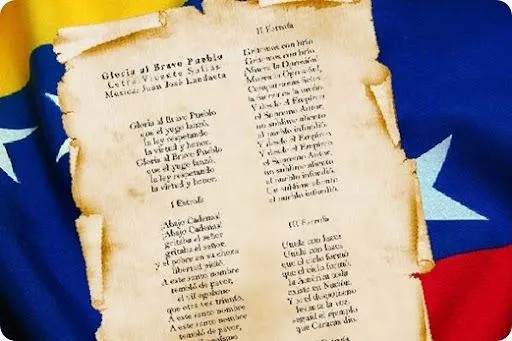 Gloria al Bravo Pueblo
Letra: Vicente Salias
Música: Juan José Landaeta
Gloria al Bravo Pueblo
que el yugo lanzó,
la ley respetando
la virtud y honor.
Gloria al Bravo Pueblo
que el yugo lanzó,
la ley respetando
la virtud y honor.
I Estrofa
¡Abajo Cadenas!
¡Abajo Cadenas!
gritaba el señor,
gritaba el señor,
y el pobre en su choza
libertad pidió.
A este santo nombre
tembló de pavor,
el vil egoísmo
que otra vez triunfó.
A este santo nombre
tembló de pavor,
II Estrofa
Gritemos con brío
Gritemos con brío
Muera la Opresión!
Muera la Opresión!
Compatriotas fieles,
la fuerza es la unión.
Y desde el Empíreo
el Supremo Autor,
un sublime aliento
al pueblo infundió.
Y desde el Empíreo
el Supremo Autor,
un sublime aliento
al pueblo infundió.
Un sublime aliento
al pueblo infundió.
III Estrofa
Unida con lazos
Unida con lazos
que el cielo formó
que el cielo formó,
la América toda
existe en Nación.
Y si el despotismo
levanta la voz,
seguid el ejemplo
que Caracas dio.